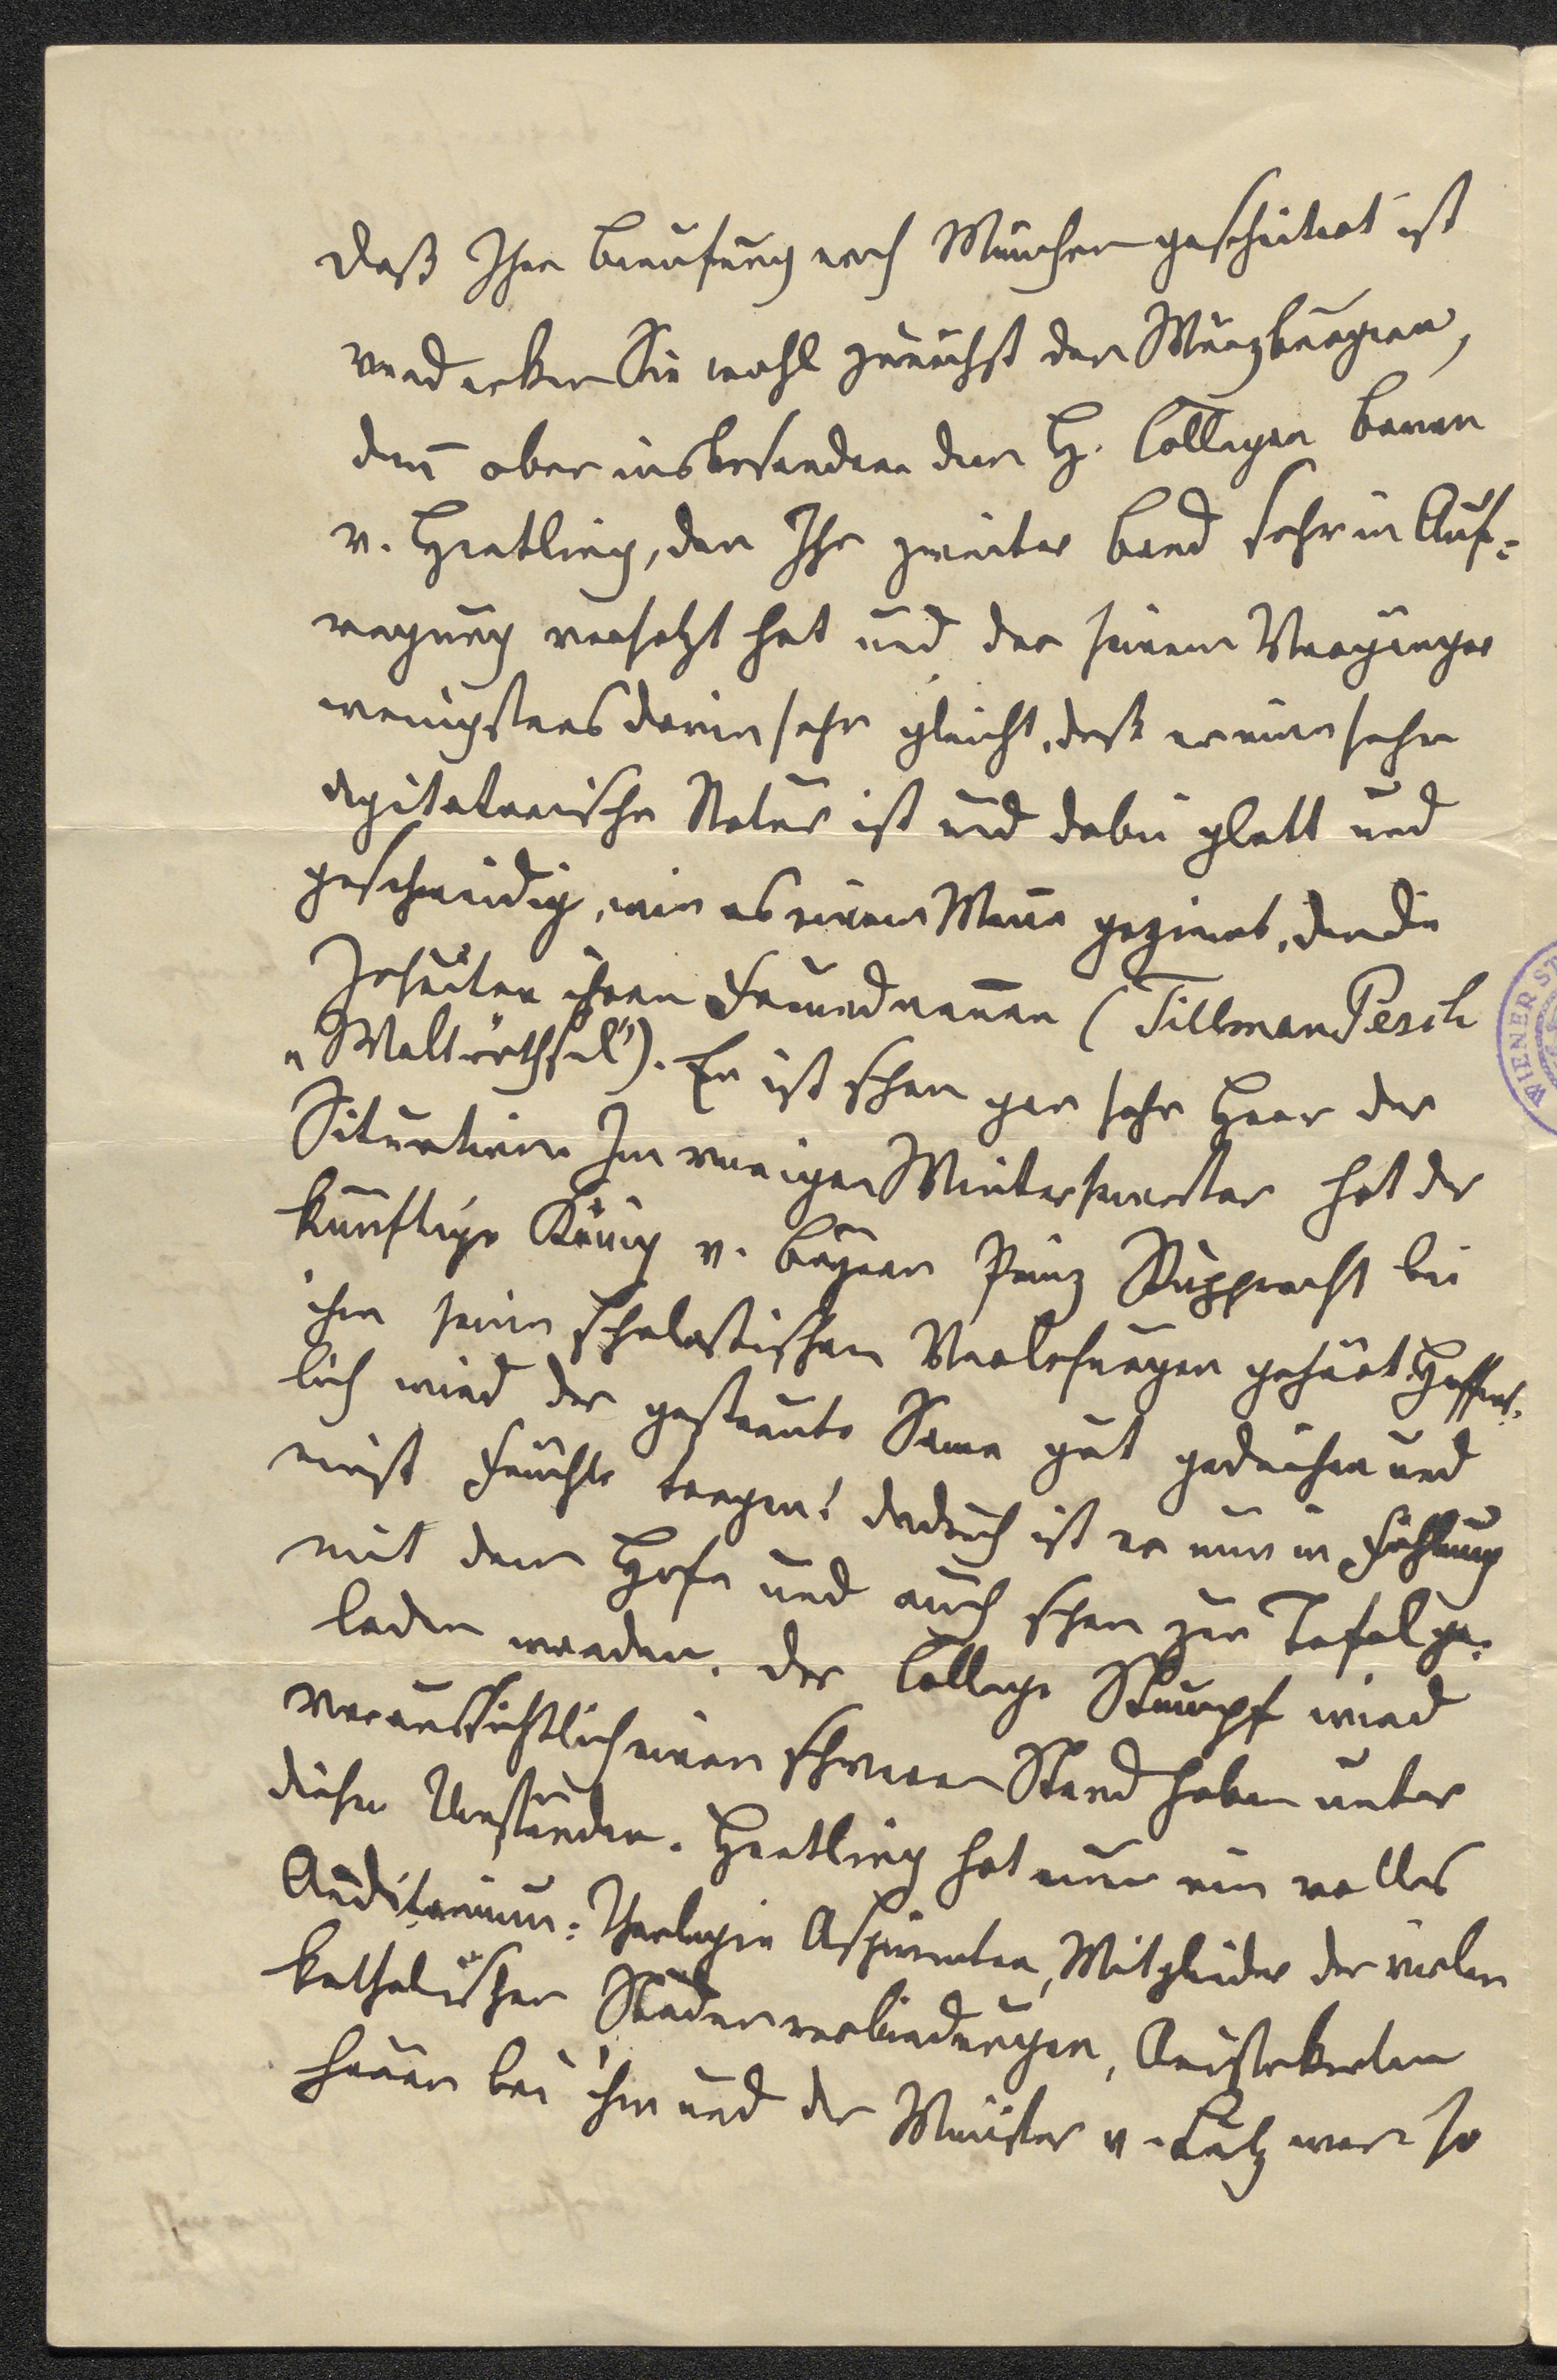 daß Ihre Berufung nach München gescheitert ist
verdanken Sie wohl zunächst den Würzburgern,
dañ aber insbesondere dem H. Collegen Baron
v. Hertling, den Ihr zweiter Band sehr in Auf-
regung versetzt hat und der seinem Vorgänger
wenigstens darin sehr gleicht, daß er eine sehr
agitatorische Natur ist und dabei glatt und
geschmeidig, wie es einem Mañe geziemt, den die
Jesuiten ihren Freund neñen (Tillman Pesch
„Welträthsel"). Er ist schon gar sehr Herr der
Situation. Im vorigen Wintersemester hat der
künftige König v. Bayern Prinz Rupprecht bei
ihm seine scholastischen Vorlesungen gehört. Hoffent-
lich wird der gestreute Same gut gedeihen und
einst Früchte tragen! Dadurch ist er nun in Fühlung
mit dem Hofe und auch schon zur Tafel ge-
laden worden. Der College Stumpf wird
voraussichtlich einen schweren Stand haben unter
diesen Umständen. Hertling hat nun ein volles
Auditorium: Theologie Aspiranten, Mitglieder der vielen
katholischen Studenverbindungen, Aristokraten
hören bei ihm und der Minister v. Lutz war so
WIENER ST